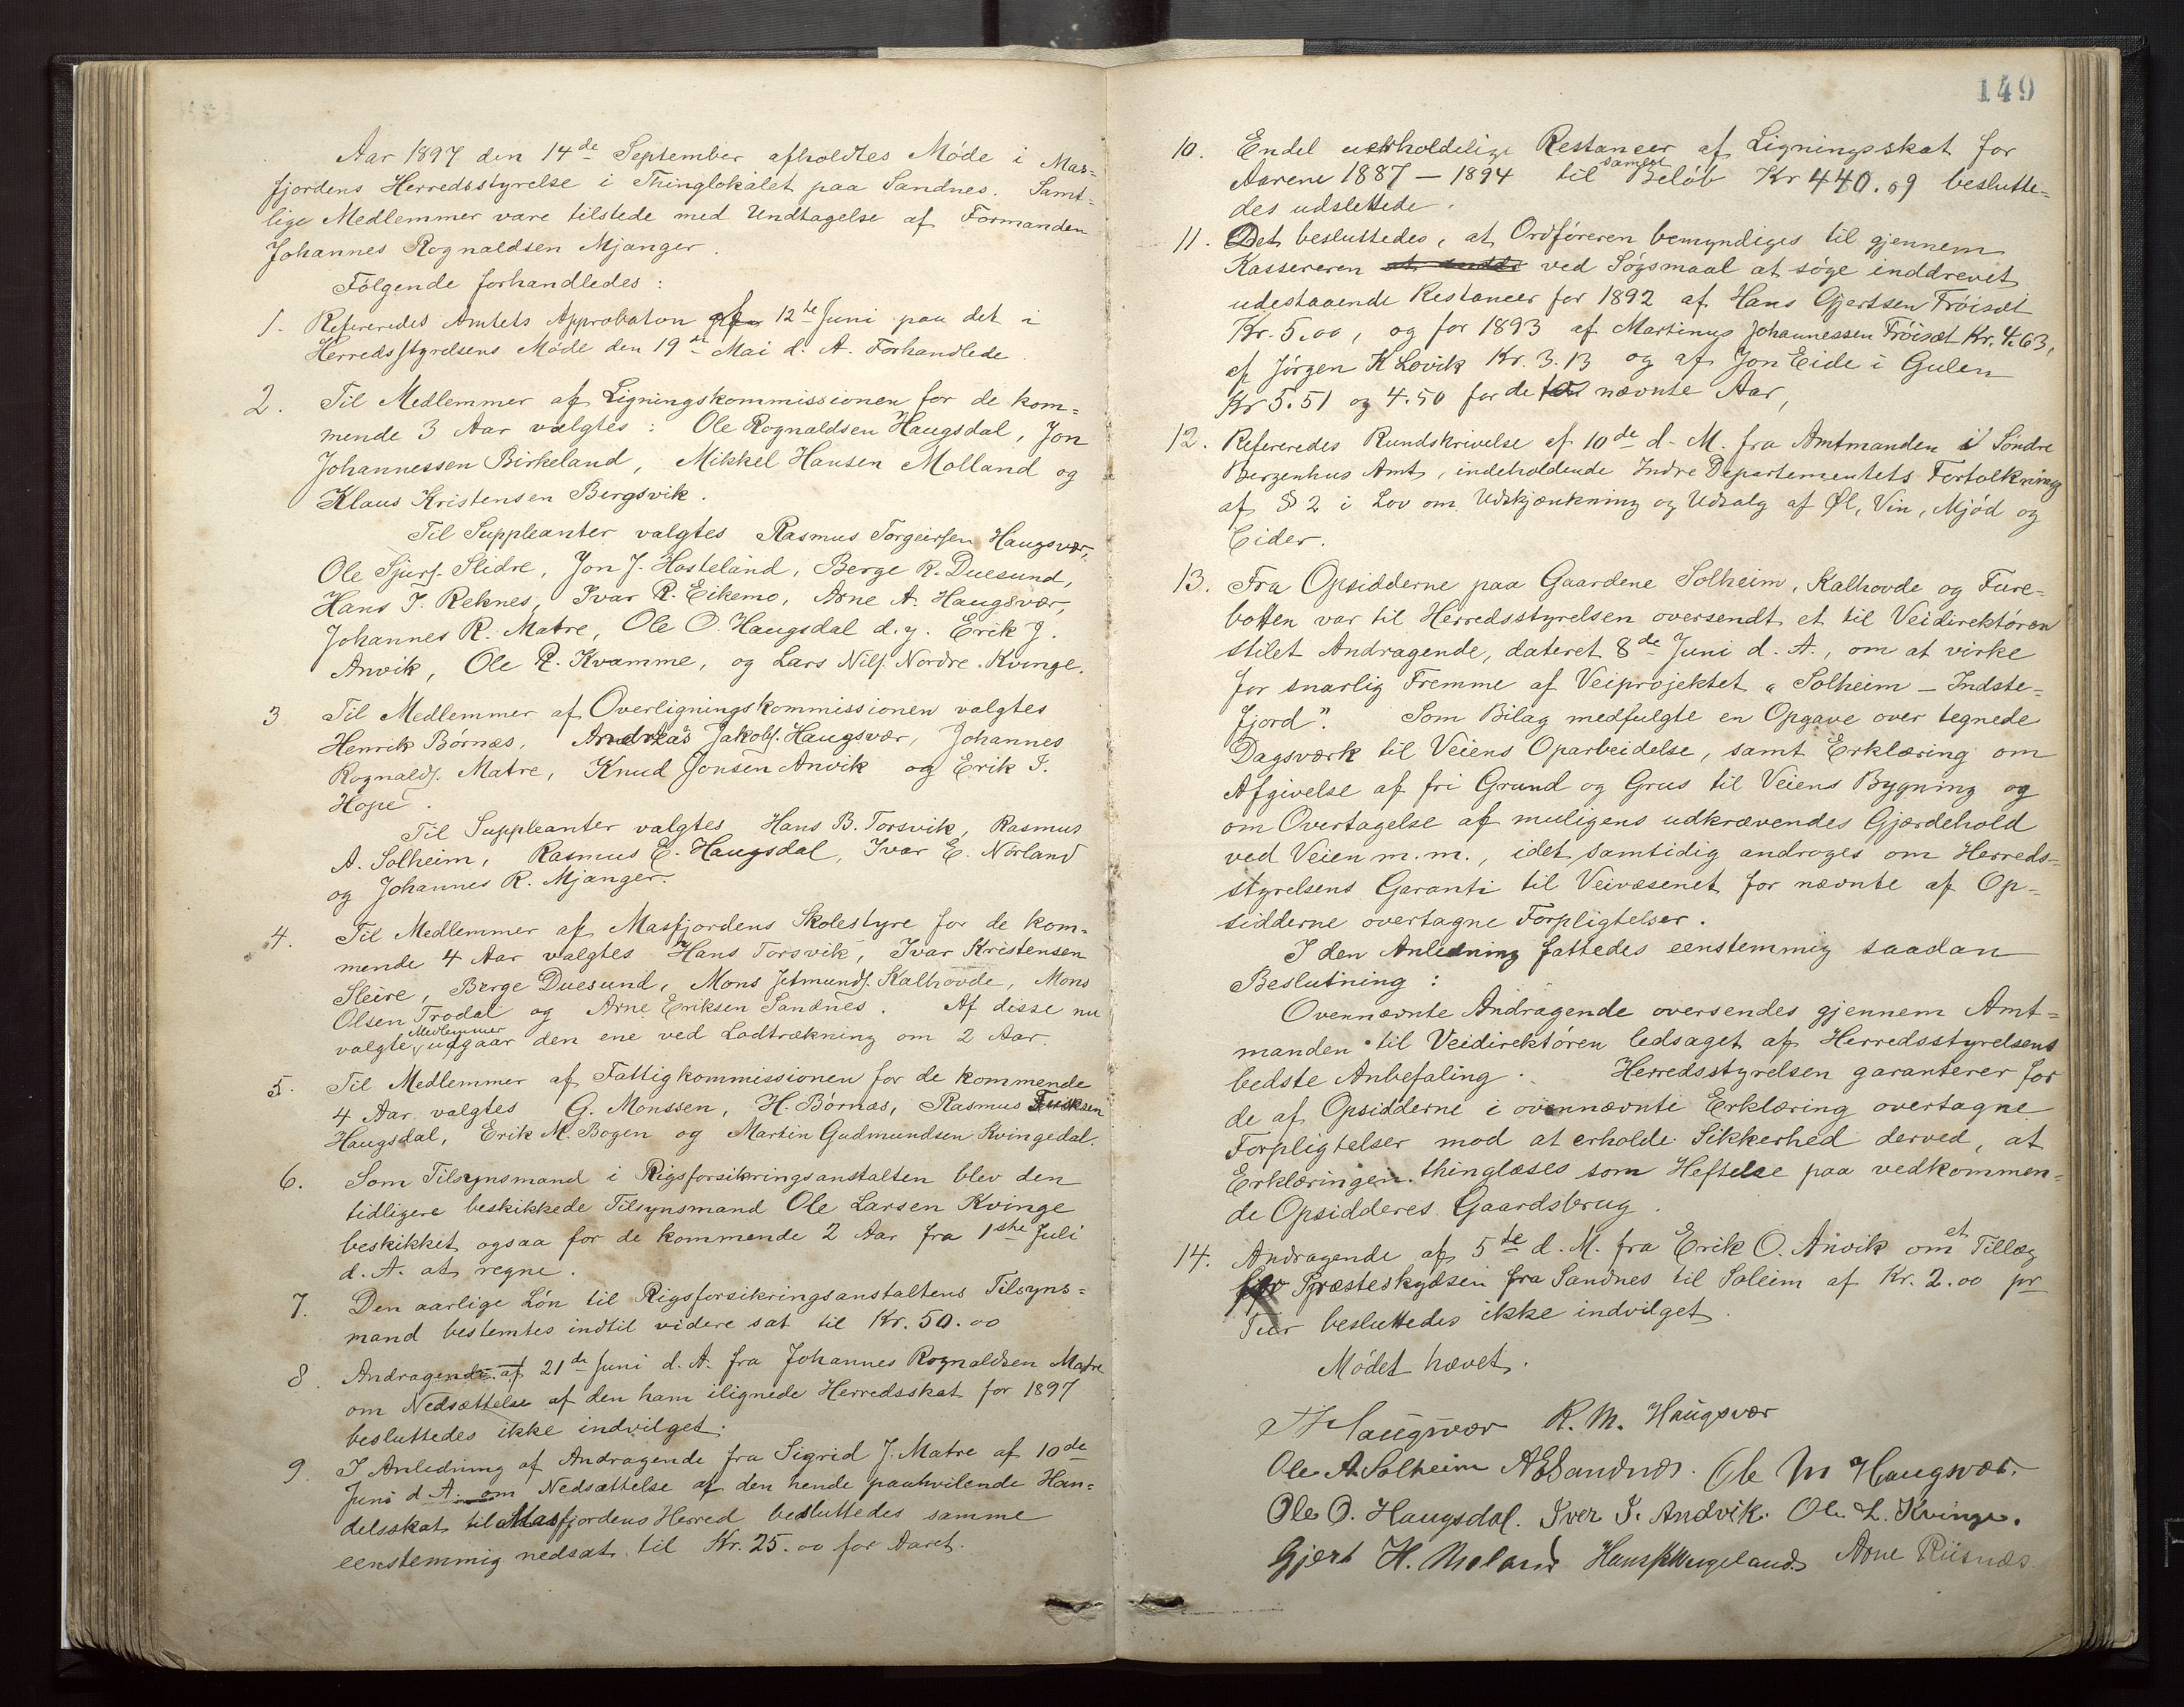 Aar 1897 den 14de September afholdtes Møde i Mas-
fjordens Herredsstyrelse i Thinglokalet paa Sandnes. Samt-
lige Medlemmer vare tilstede med Undtagelse af Formanden
Johannes Rognaldsen Mjanger.
Følgende forhandledes:
1. Refereredes Amtets Approbation af 12te Juni paa det i
Herredsstyrelsens Møde den 19de Mai d. A. Forhandlede.
2. Til Medlemmer af Ligningskommissionen for de kom-
mende 3 Aar valgtes: Ole Rognaldsen Haugsdal, Jon
Johannessen Birkeland, Mikkel Hansen Molland og
Klaus Kristensen Bergsvik.
Til Suppleanter valgtes Rasmus Torgeirsen Haugsvær,
Ole Sjurs. Slidre, Jon J. Hosteland, Berge R. Duesund,
Hans J. Reknes, Ivar R. Eikemo, Arne A. Haugsvær,
Johannes R. Matre, Ole O. Haugsdal d.y. Erik J.
Anvik, Ole R. Kvamme, og Lars Nils. Nordre Kvinge.
3 Til Medlemmer af Overligningskommissionen valgtes
Henrik Børnæs, Andreas Jakobs. Haugsvær, Johannes
Rognalds. Matre, Knud Jonsen Anvik og Erik I.
Hope.
Til Suppleanter valgtes Hans B. Torsvik, Rasmus
A. Solheim, Rasmus E. Haugsdal, Ivar E. Nørland
og Johannes R. Mjanger.
4. Til Medlemmer af Masfjordens Skolestyre for de kom-
mende 4 Aar valgtes Hans Torsvik, Ivar Kristensen
Sleire, Berge Duesund, Mons Jetmunds. Kalhovde, Mons
Olsen Trodal og Arne Eriksen Sandnes. Af disse nu
valgte Medlemmer udgaar den ene ved Lodtrækning om 2 Aar.
5. Til Medlemmer af Fattigkommissionen for de kommende
4 Aar valgtes G. Monssen, H. Børnæs, Rasmus Eriksen
Haugsdal, Erik M. Bogen og Martin Gudmundsen Kvingedal.
6. Som Tilsynsmand i Rigsforsikringsanstalten blev den
tidligere beskikkede Tilsynsmand Ole Larsen Kvinge
beskikket ogsaa for de kommende 2 Aar fra 1ste Juli
d. A. at regne.
7. Den aarlige Løn til Rigsforsikringsanstaltens Tilsyns-
mand bestemtes indtil videre sat til Kr. 50.00
8. Andragende af 21de Juni d. A. fra Johannes Rognaldsen Matre
om Nedsættelse af den ham ilignede Herredsskat for 1897
besluttedes ikke indvilget.
9. I Anledning af Andragende fra Sigrid J. Matre af 10de
Juni d A. om Nedsættelse af den hende paahvilende Han-
delsskat til Masfjordens Herred besluttedes samme
eenstemmig nedsat til Kr. 25.00 for Aaret.
149
10. Endel uerholdelige Restancer af Ligningsskat for
Aarene 1887 – 1894 til samlet Beløb Kr 440.09 beslutte-
des udslettede.
11. Det besluttedes, at Ordføreren bemyndiges til gjennem
Kassereren ved Søgsmaal at søge inddrevet
udestaaende Restancer for 1892 af Hans Gjertsen Frøiset
Kr. 5.00, og for 1893 af Martinus Johannessen Frøiset Kr. 4.63,
af Jørgen K Lovik Kr. 3.13 og af Jon Eide i Gulen
Kr 5.51 og 4.50 for de to nævnte Aar,
12. Refereredes Rundskrivelse af 10de d. M. fra Amtmanden i Søndre
Bergenhus Amt, indeholdende Indre Departementets Fortolkning
af § 2 i Lov om Udskjænkning og Udsalg af Øl, Vin, Mjød og
Cider.
13. Fra Opsidderne paa Gaardene Solheim, Kalhovde og Fure-
botten var til Herredsstyrelsen oversendt et til Veidirektøren
stilet Andragende, dateret 8de Juni d. A., om at virke
for snarlig Fremme af Veiprojektet „Solheim – Indste-
fjord". Som Bilag medfulgte en Opgave over tegnede
Dagsværk til Veiens Oparbeidelse, samt Erklæring om
Afgivelse af fri Grund og Grus til Veiens Bygning og
om Overtagelse af muligens udkrævendes Gjærdehold
ved Veien m.m., idet samtidig androges om Herreds-
styrelsens Garanti til Veivæsenet for nævnte af Op-
sidderne overtagne Forpligtelser.
I den Anledning fattedes eenstemmig saadan
Beslutning:
Ovennævnte Andragende oversendes gjennem Amt-
manden til Veidirektøren ledsaget af Herredsstyrelsens
bedste Anbefaling. Herredsstyrelsen garanterer for
de af Opsidderne i ovennævnte Erklæring overtagne
Forpligtelser mod at erholde Sikkerhed derved, at
Erklæringen thinglæses som Heftelse paa vedkommen-
de Opsidderes Gaardsbrug.
14. Andragende af 5te d. M. fra Erik O. Anvik om et Tillæg
for Præsteskydsen fra Sandnes til Soleim af Kr. 2.00 pr
Tur besluttedes ikke indvilget.
Mødet hævet.
Haugsvær R. M. Haugsvær
Ole A. Solheim A E Sandnes. Ole M Haugsvær.
Ole O. Haugsdal. Iver I. Andvik. Ole L. Kvinge.
Gjert H. Moland Hans Wergeland Arne Riisnæs